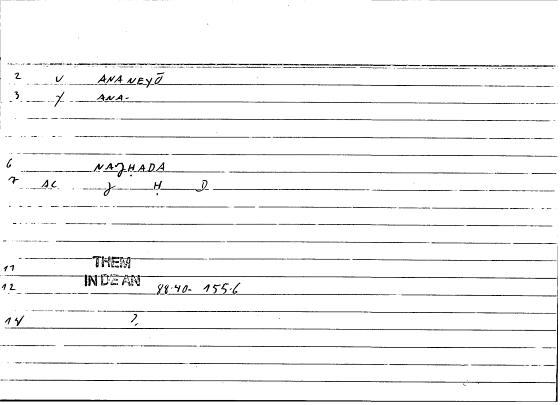 2 V ANANEYŌ
3 Y ANA-
6 NAƷḤADA
7 AC Ʒ Ḥ D
11 THEM
12 IN DE AN 98.40- 155.6
14 ?